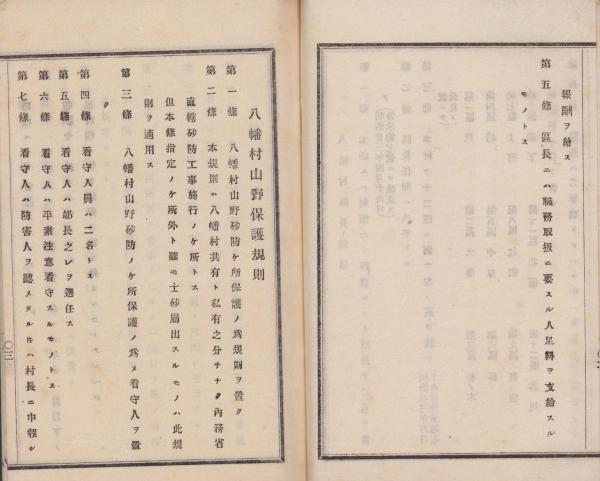 報酬ヲ給ス
第五條 區長ニハ職務取扱ニ要スル人足料ヲ支給スル
モノトス
八幡村山野保護規則
第一條 八幡村山野砂防ケ所保護ノ爲規則ヲ置ク
第二條 本規則ハ八幡村共有ト私有之分チナク内務省
直轄砂防工事施行ノケ所トス
但本條指定ノケ所外ト雖モ土砂崩出スルモノハ此規
則ヲ適用ス
第三條 八幡村山野砂防ノケ所保護ノ爲メ看守人ヲ置
ク
第四條 看守人員ハ二名トス
第五條 看守人ハ部長之レヲ選任ス
第六條 看守人ハ平素注意看守スルモノトス
第七條 看守人ハ防害人ヲ認メタル時ハ村長ニ申報シ